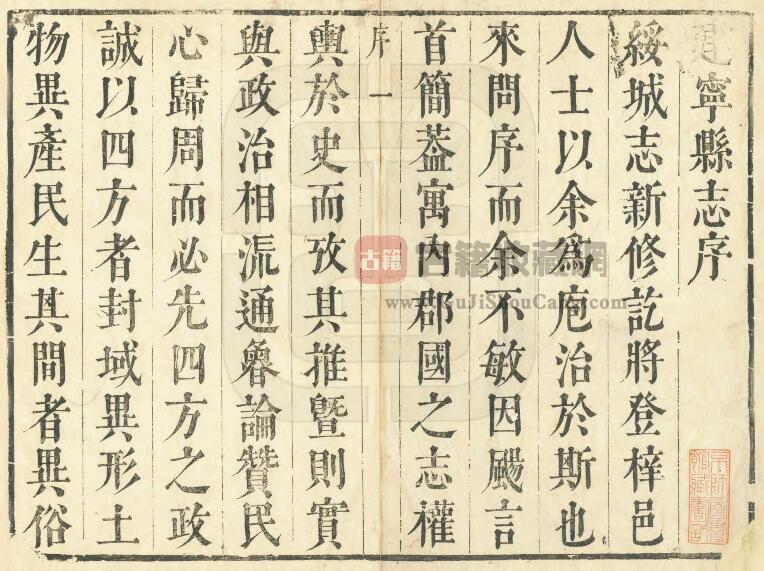 建寧縣志序
綏城志新修訖將登梓邑
人士以余爲庖治於斯也
來問序而余不敏因颺言
首簡葢寓內郡國之志權
序 一
輿於史而攷其推曁則實
與政治相沠通魯論贊民
心歸周而必先四方之政
誠以四方者封域異形土
物異產民生其間者異俗
古籍 古籍收藏網
www.GuJiShouCang.com
京師圖書館藏書記